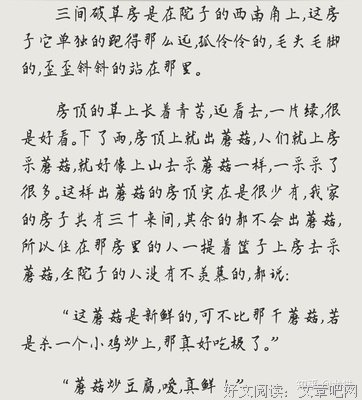 三间破草房是在院子的西南角上,这房
子它单独的跑得那么远,孤伶伶的,毛头毛脚
的,歪歪斜斜的站在那里。
房顶的草上长着青苔,远看去,一片绿,很
是好看。下了雨,房顶上就出蘑菇,人们就上房
采蘑菇,就好像上山去采蘑菇一样,一采采了
很多。这样出蘑菇的房顶实在是很少有,我家
的房子共有三十来间,其余的都不会出蘑菇,
所以住在那房里的人一提着筐子上房去采
蘑菇,全院子的人没有不羡慕的,都说:
“这蘑菇是新鲜的,可不比那干蘑菇,若
是杀一个小鸡炒上,那真好吃极了。”
“蘑菇炒豆腐,嗳,真鲜!”
好文阅读:文章吧网